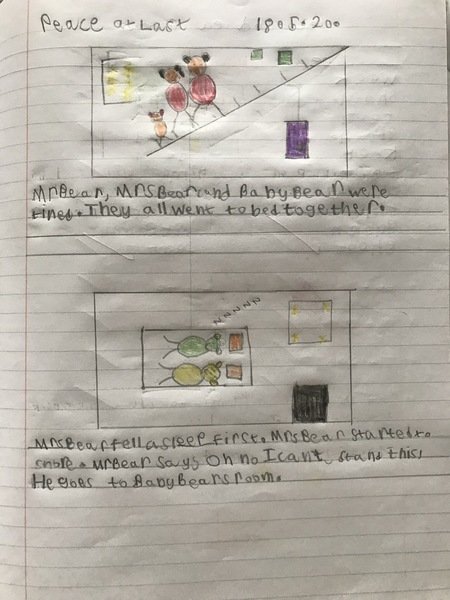 Peace at Last 18.5.200
MrBear, MrsBear and BabyBear were
tired. They all went to bed together.
NNNNN
MrsBear fell asleep first. MrsBear started to
snore. MrBear says Oh no I cant stand this,
He goes to BabyBears room.